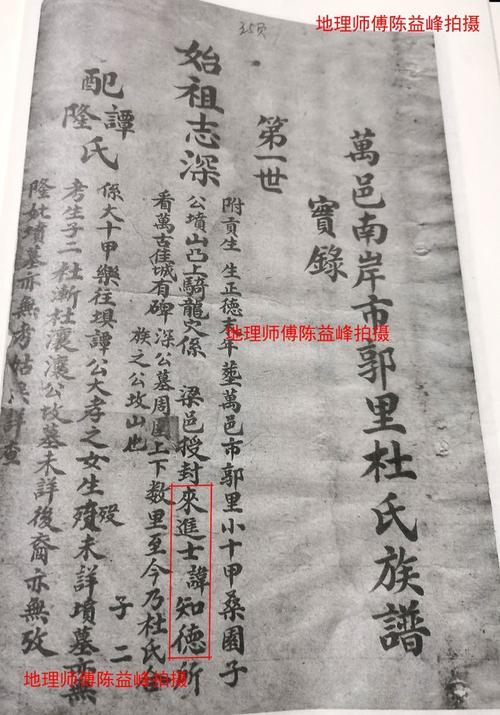 地理师傅陈益峰拍摄
35页
萬邑南岸市郭里杜氏族譜
實錄
第一世
始祖志深
附貢生 生正德末年塟萬邑市郭里小十甲桑園子
公墳山凸上騎龍穴係 梁邑授封來進士諱知德所
看萬古佳城有碑 深公墓周圍上下数里至今乃杜氏
族之公坟山也
配譚
隆氏
係大十甲樂往埧譚公大孝之女生殁未詳墳墓亦無
考生子二杜漸杜瀼瀼公坟墓未詳後裔亦無攷
子二
隆妣墳墓亦無考姑
詳查
地理师傅陈益峰拍摄
地理师傅陈益峰拍摄